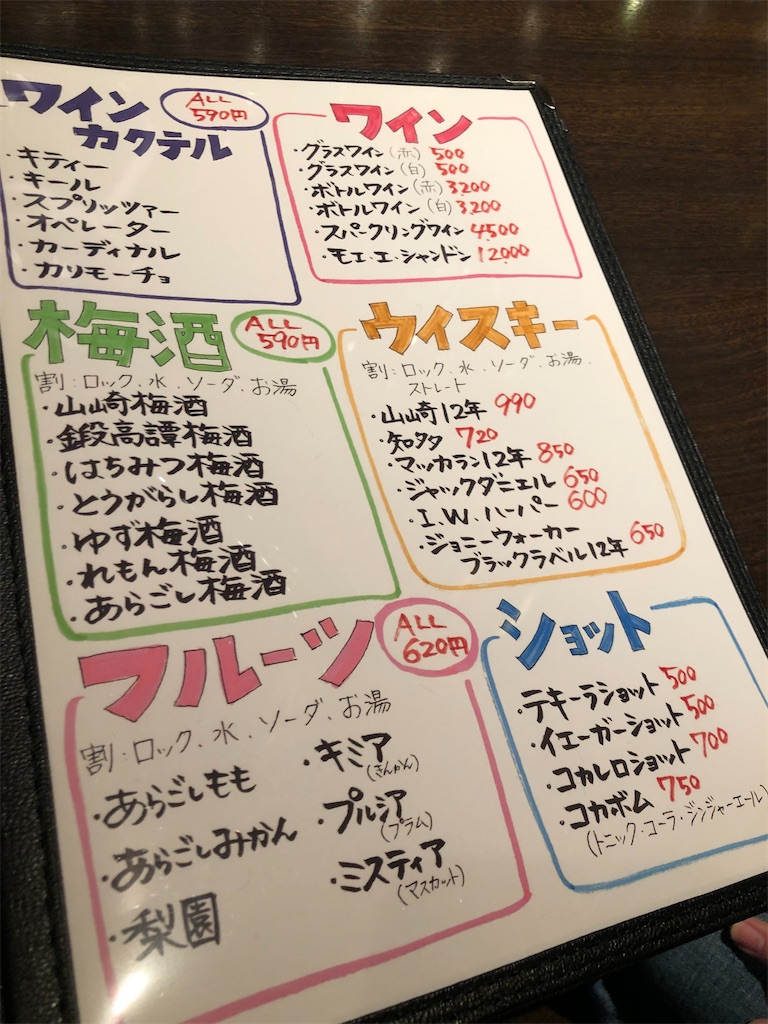 ワイン
カクテル
ALL
590円
・キティー
・キール
・スプリッツァー
・オペレーター
・カーディナル
・カリモーチョ
ワイン
・グラスワイン(赤) 500
・グラスワイン(白) 500
・ボトルワイン(赤) 3200
・ボトルワイン(白) 3200
・スパークリングワイン 4500
・モエ・エ・シャンドン 12000
梅酒
ALL
590円
割:ロック、水、ソーダ、お湯
・山崎梅酒
・鍛高譚梅酒
・はちみつ梅酒
・とうがらし梅酒
・ゆず梅酒
・れもん梅酒
・あらごし梅酒
ウイスキー
割:ロック、水、ソーダ、お湯、
ストレート
・山崎12年 990
・知多 720
・マッカラン12年 850
・ジャックダニエル 650
・I.W.ハーパー 600
・ジョニーウォーカー
ブラックラベル12年 650
フルーツ
ALL
620円
割:ロック、水、ソーダ、お湯
・あらごしもも
・あらごしみかん
・梨園
・キミア
(きんかん)
・プルシア
(プラム)
・ミスティア
(マスカット)
ショット
・テキーラショット 500
・イエーガーショット 500
・コカレロショット 700
・コカボム 750
(トニック・コーラ・ジンジャーエール)